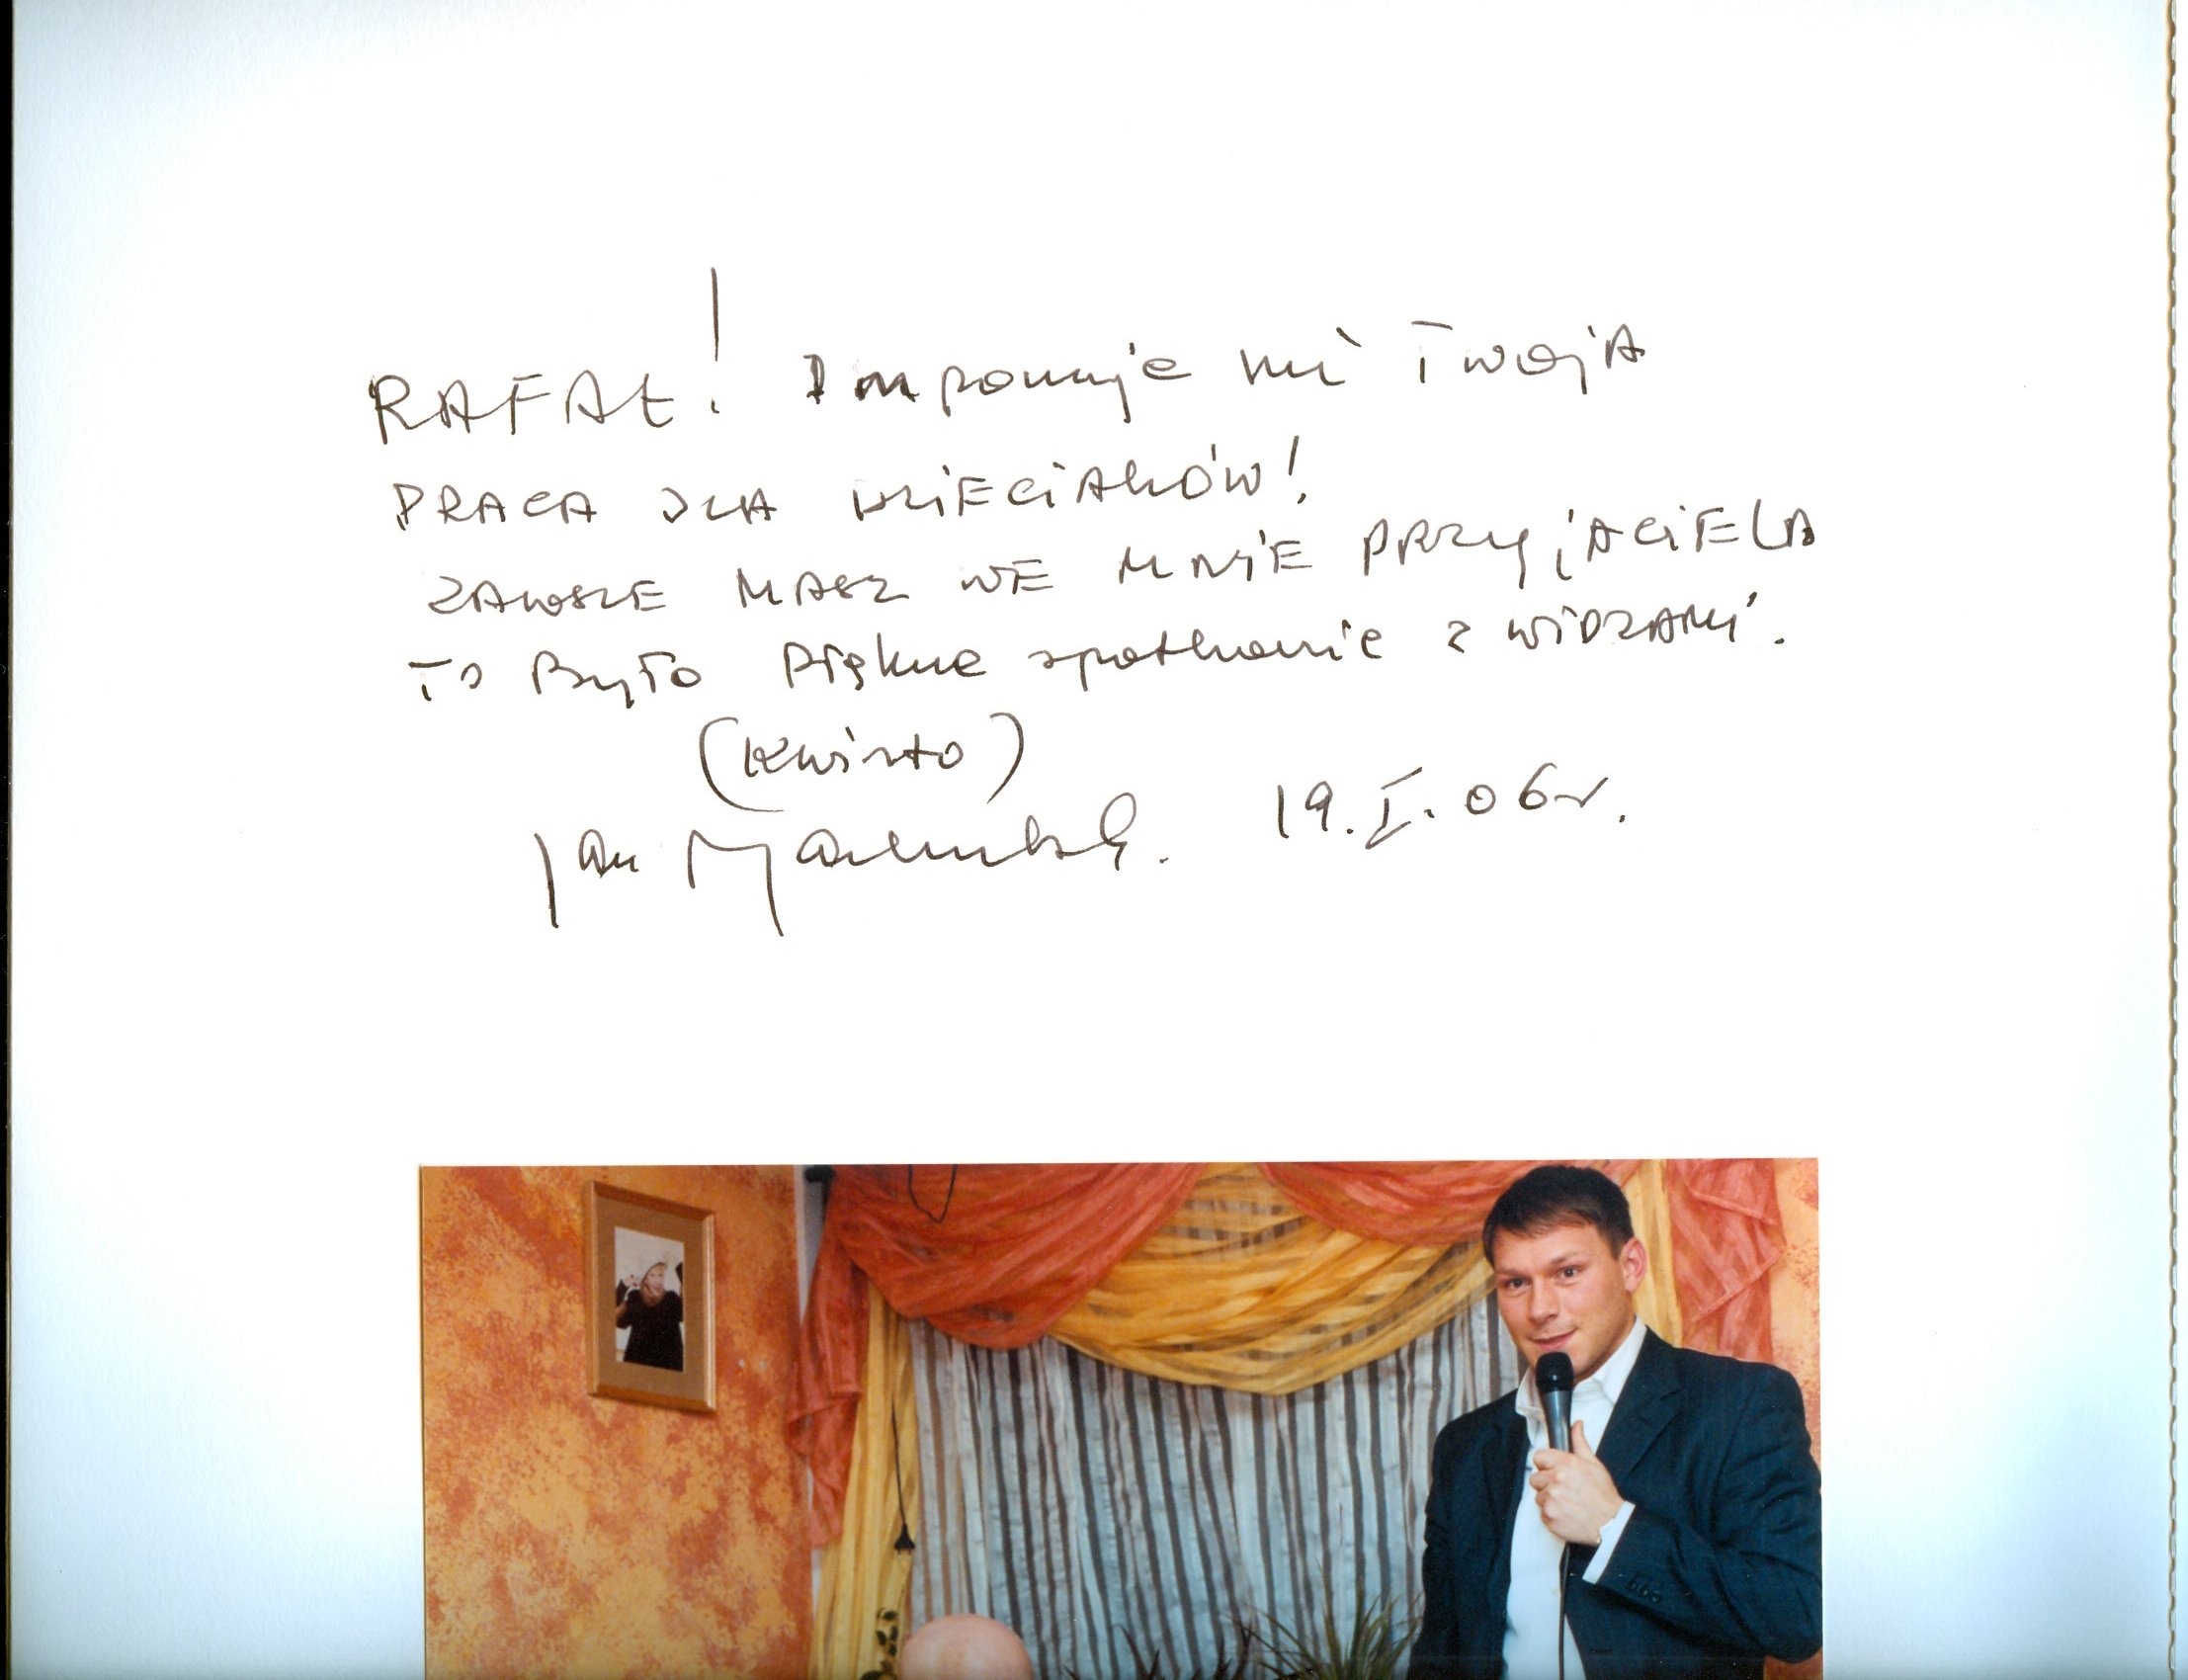 RAFAŁ! Imponuje mi Twoja
PRACA DLA DZIECIAKÓW!
ZAWSZE MASZ WE MNIE PRZYJACIELA
TO Było Piękne spotkanie z WIDZAMI.
(Kwinto)
Jan Machulski. 19.I.06r.